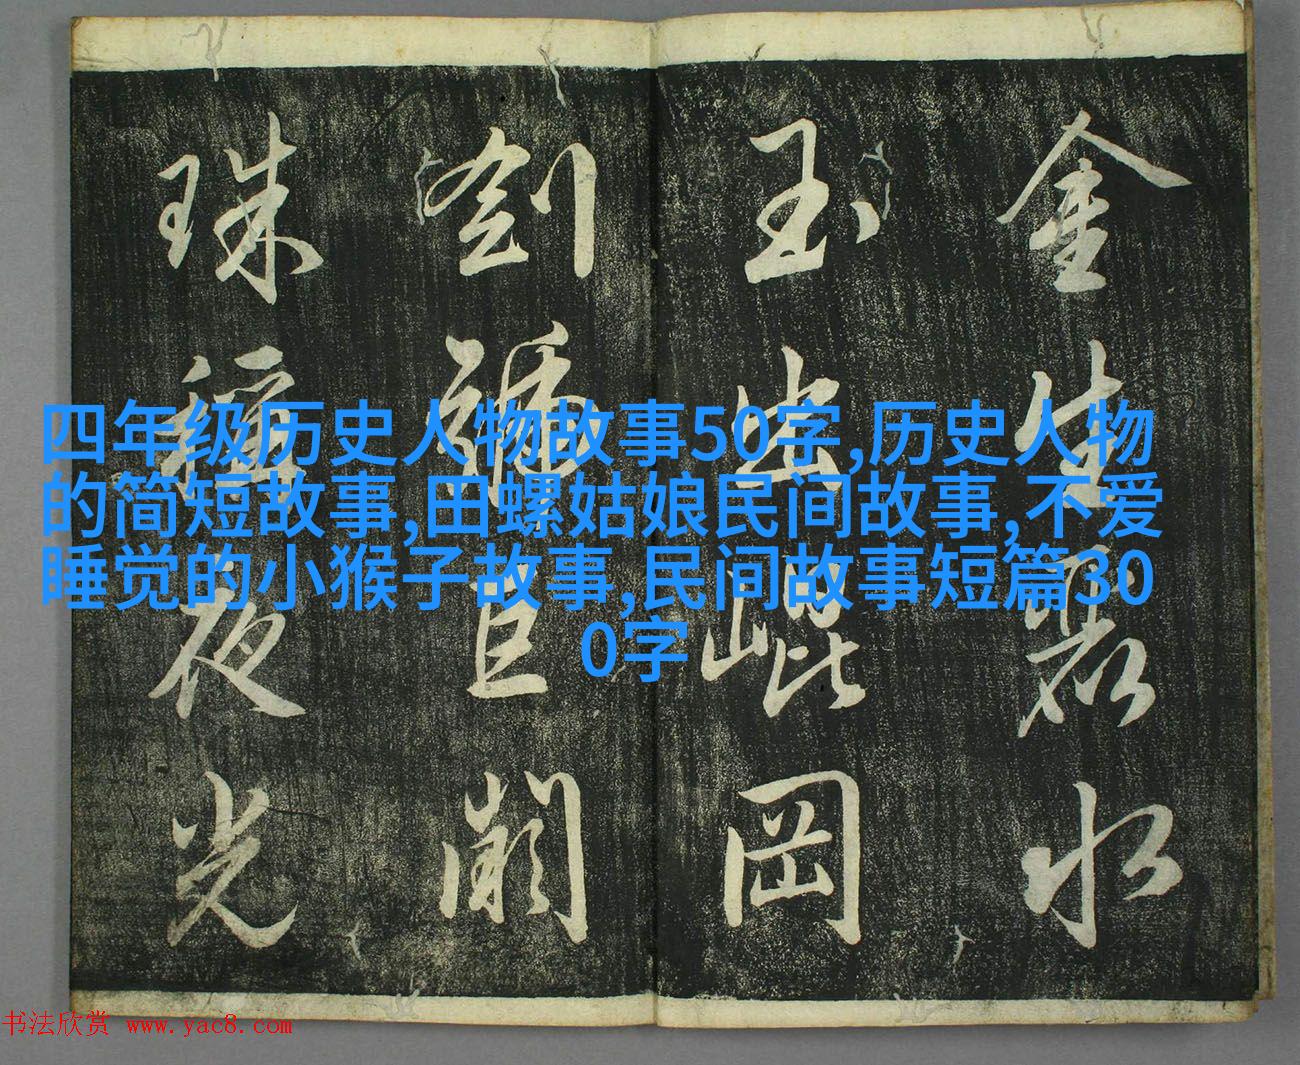 四年级历史人物故事50字,历史人物
的简短故事,田螺姑娘民间故事,不爱
睡觉的小猴子故事,民间故事短篇30
0字
金生麗水
玉出崐岡
劍號巨闕
珠稱夜光
书法欣赏 www.yac8.com